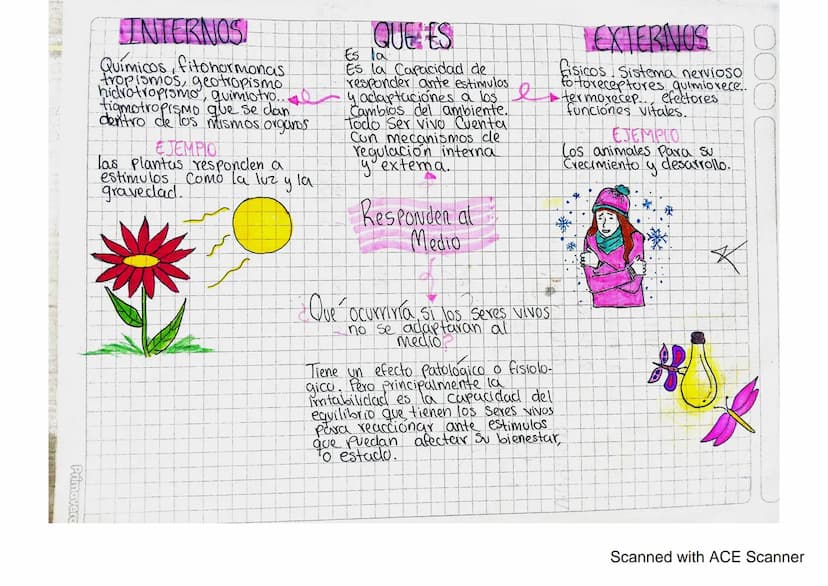 INTERNOS
Químicos, fitohormonas
tropismos, geotropismo
hidrotropismo, quimiotro..
tigmotropismo que se dan
dentro de los mismos organos
EJEMPLO
las plantas responden a
estímulos como la luz y la
gravedad.
QUE ES
Es la
Es la Capacidad de
responder ante estimulos
y adaptaciones a los
Cambios del ambiente.
Todo Ser vivo Cuenta
Con mecanismos de
regulación interna
y externa.
EXTERNOS
físicos. Sistema nervioso
fotoreceptores, quimiorece..
termorecep... efectores
funciones vitales.
EJEMPLO
Los animales Para su
Crecimiento y desarrollo.
Responden al
Medio
¿Qué ocurriría si los seres vivos
no se adaptaran al
medio?
Tiene un efecto patológico o fisiolo-
gico. Pero principalmente la
irritabilidad es la capacidad del
equilibrio que tienen los seres vivos
para reaccionar ante estimulos
que puedan afectar su bienestar,
o estado.
Primavera
Scanned with ACE Scanner